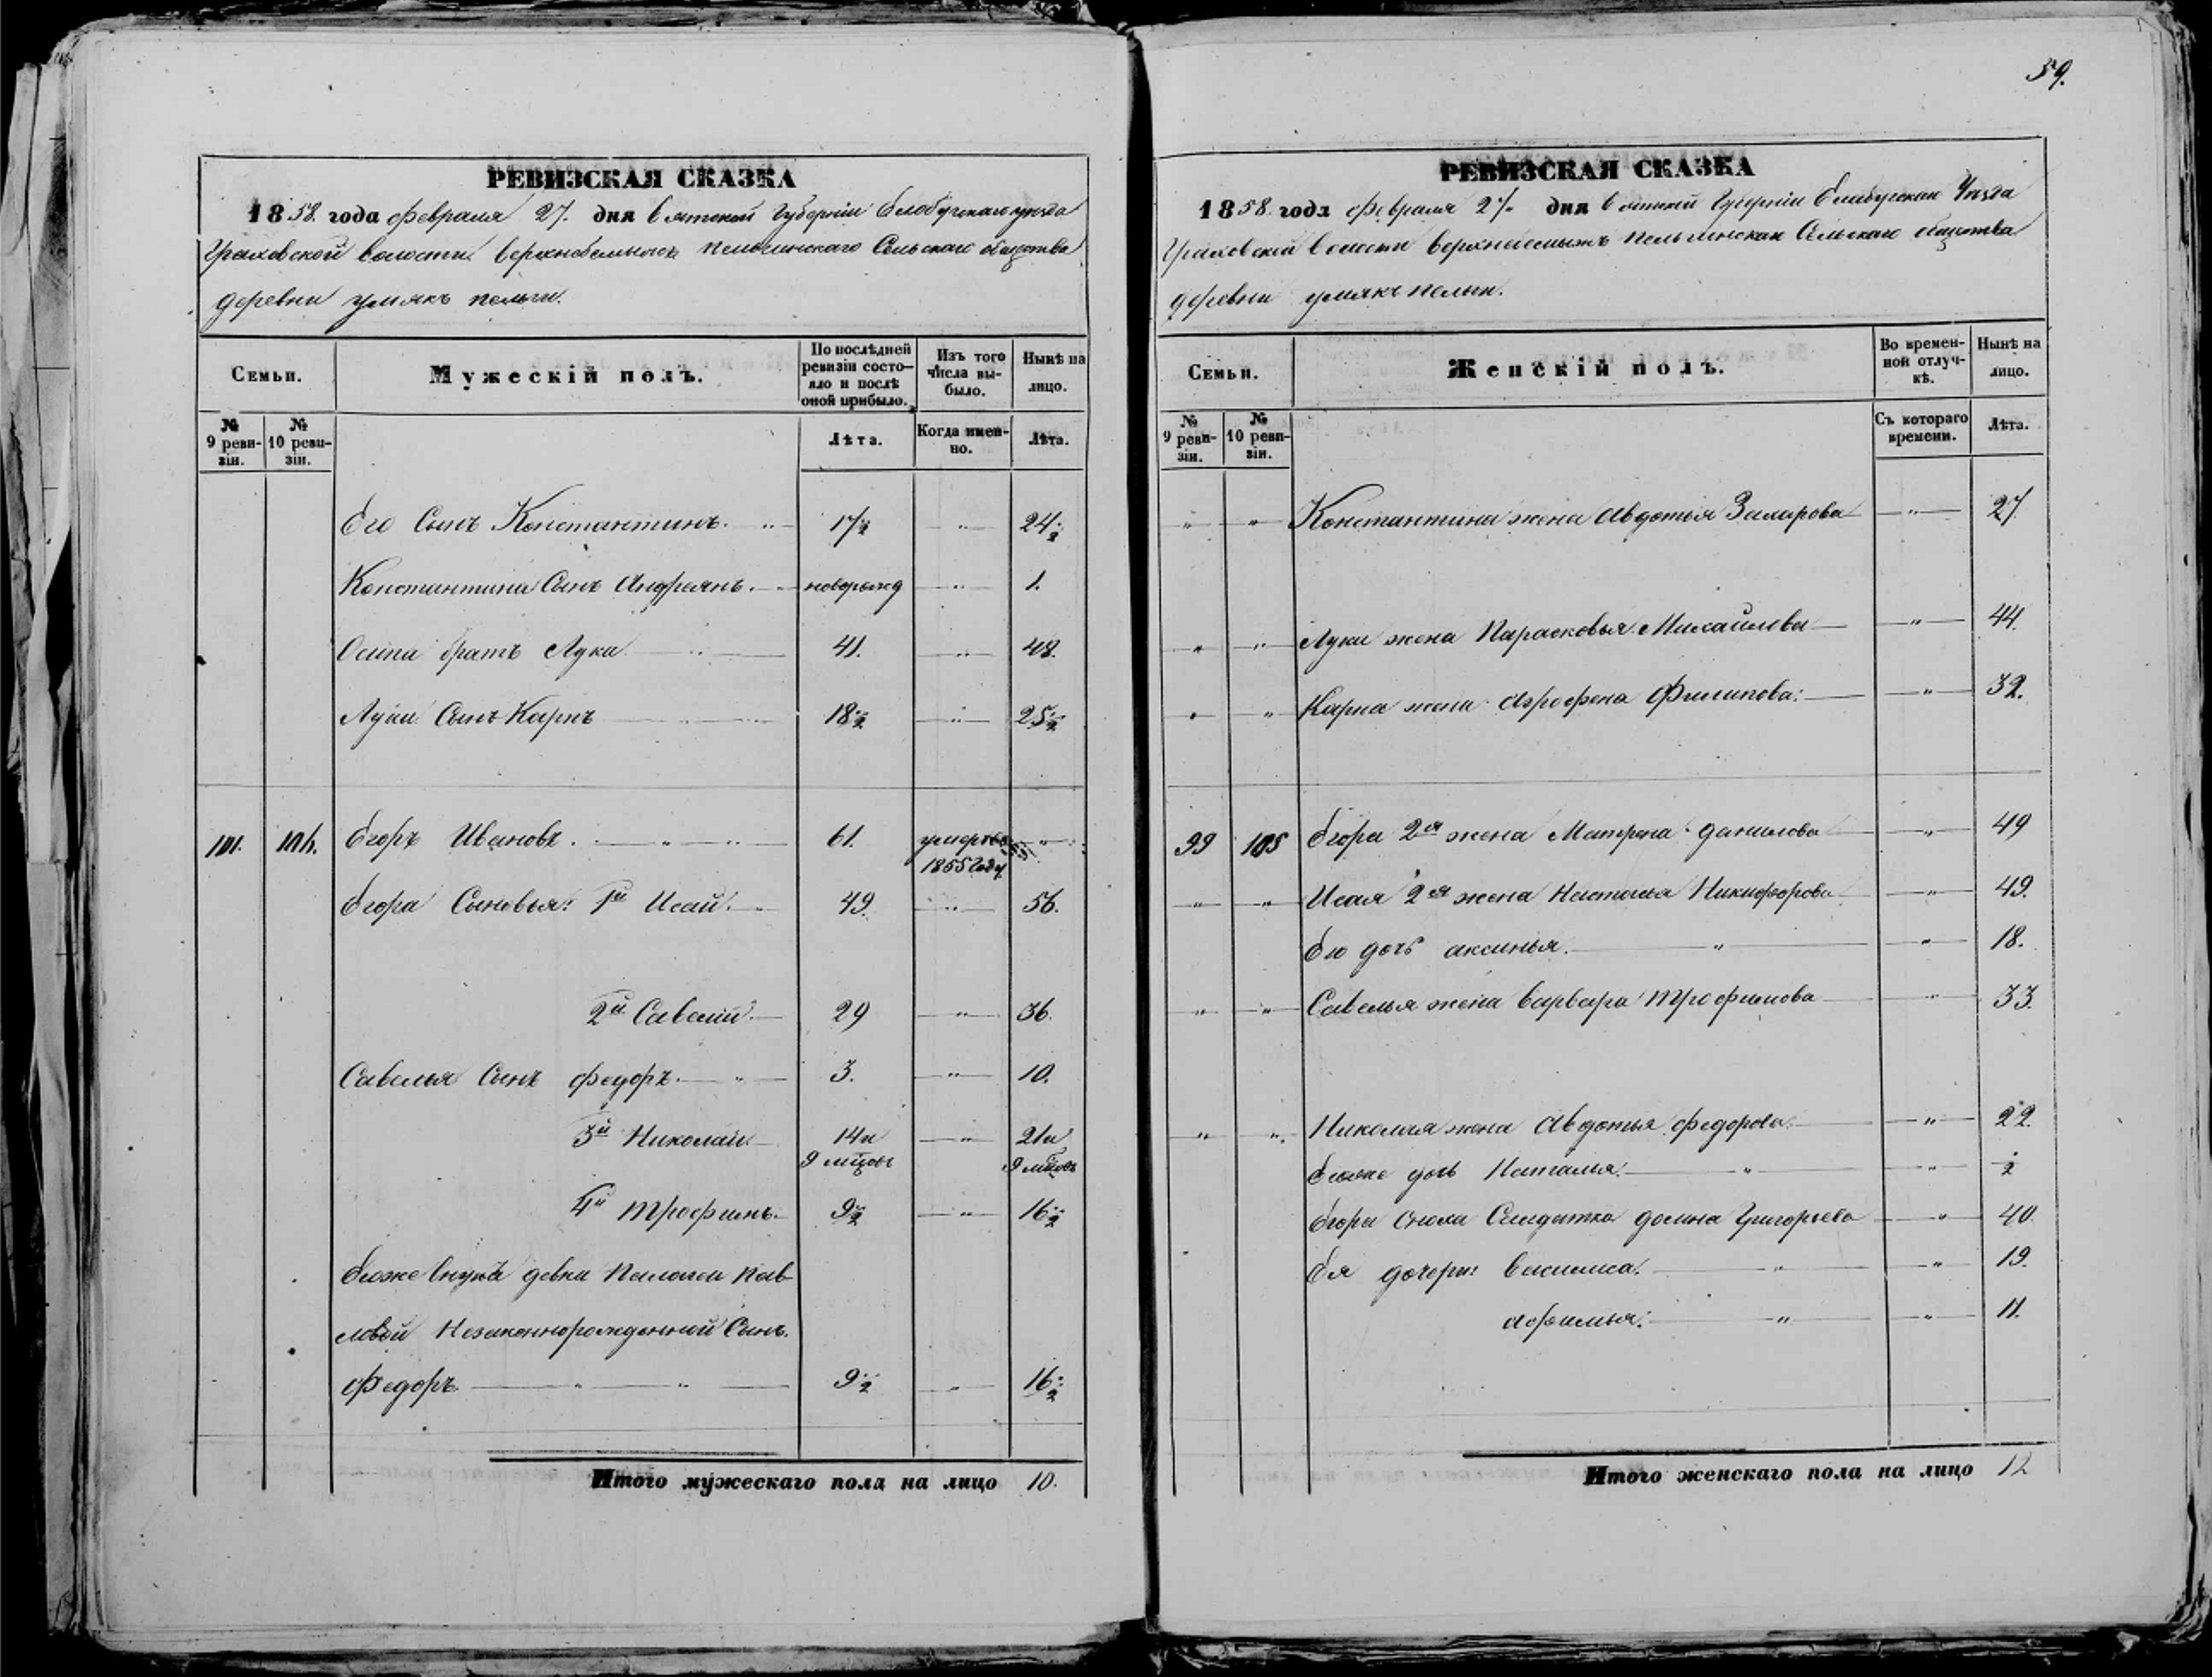 59.
РЕВИЗСКАЯ СКАЗКА
1858. года февраля 27. дня Вятской Губернiи Елабугскаго уезда
Граховской волости Пельгинскаго Сельскаго общества
деревни умякъ пельги.
Семьи.
Мужескiй полъ.
По послѣдней ревизiи состояло и послѣ оной прибыло.
Изъ того числа выбыло.
Нынѣ на лицо.
№ 9 ревизiи.
№ 10 ревизiи.
Лѣта.
Когда именно.
Лѣта.
Его Сынъ Константинъ. 17 1/2 24 1/2
Константина Сынъ Андреянъ. новорожд 1.
Осипа братъ Лука 41. 48.
Луки Сынъ Карпъ 18 1/2 25 1/2
101. Егоръ Ивановъ. 61. умеръ въ
1855 году
Егора Сыновья: 1й Исай. 49. 56.
2й Савелiй 29 36.
Савелья Сынъ федоръ. 3. 10.
3й Николай 14 и 21 и
9 мѣсяц 9 мѣсяц
4й трофимъ. 9 1/2 16 1/2
Егоже внуки девки Палагеи Пав-
ловой Незаконнорожденной Сынъ.
Федоръ. 9 1/2 16 1/2
Итого мужескаго пола на лицо 10.
РЕВИЗСКАЯ СКАЗКА
1858. года февраля 27. дня Вятской Губернiи Елабугскаго Уезда
Граховской Волости Пельгинскаго Сельскаго общества
деревни умякъ пельги.
Семьи.
Женскiй полъ.
Во временной отлучкѣ.
Нынѣ на лицо.
№ 9 ревизiи.
№ 10 ревизiи.
Съ котораго времени.
Лѣта.
Константина жена Авдотья Захарова 27.
Луки жена Парасковья Михайлова 44.
Карпа жена Агрофена Филипова: 32.
99 105 Егора 2я жена Матрена данилова 49
Исая 2я жена Настасья Никифорова 49.
Его дочь аксинья. 18.
Савелья жена Варвара трофимова 33.
Николая жена Авдотья федорова. 22.
Егоже дочь Наталья. 1/2
Егора сноха Солдатка Григорьева 40.
Ея дочери: Василиса. 19.
афимья. 11.
Итого женскаго пола на лицо 12